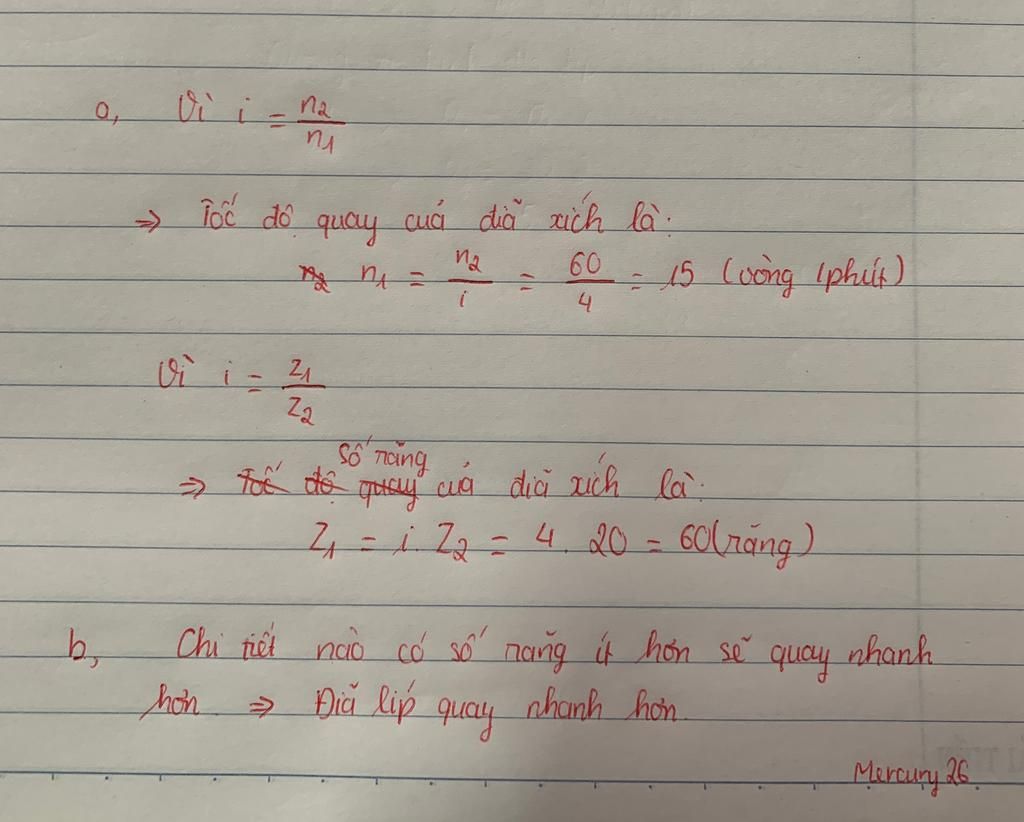 a, Vì i = n2/n1
=> Tốc độ quay cuả điã xích là:
n2 n1 = n2/i = 60/4 = 15 (vòng /phút)
Vì i = Z1/Z2
số răng
=> Tốc độ quay cuả điã xích là:
Z1 = i. Z2 = 4. 20 = 60(răng)
b, Chi tiết nào có số răng ít hơn sẽ quay nhanh
hơn => Điã líp quay nhanh hơn.
Mercury 26